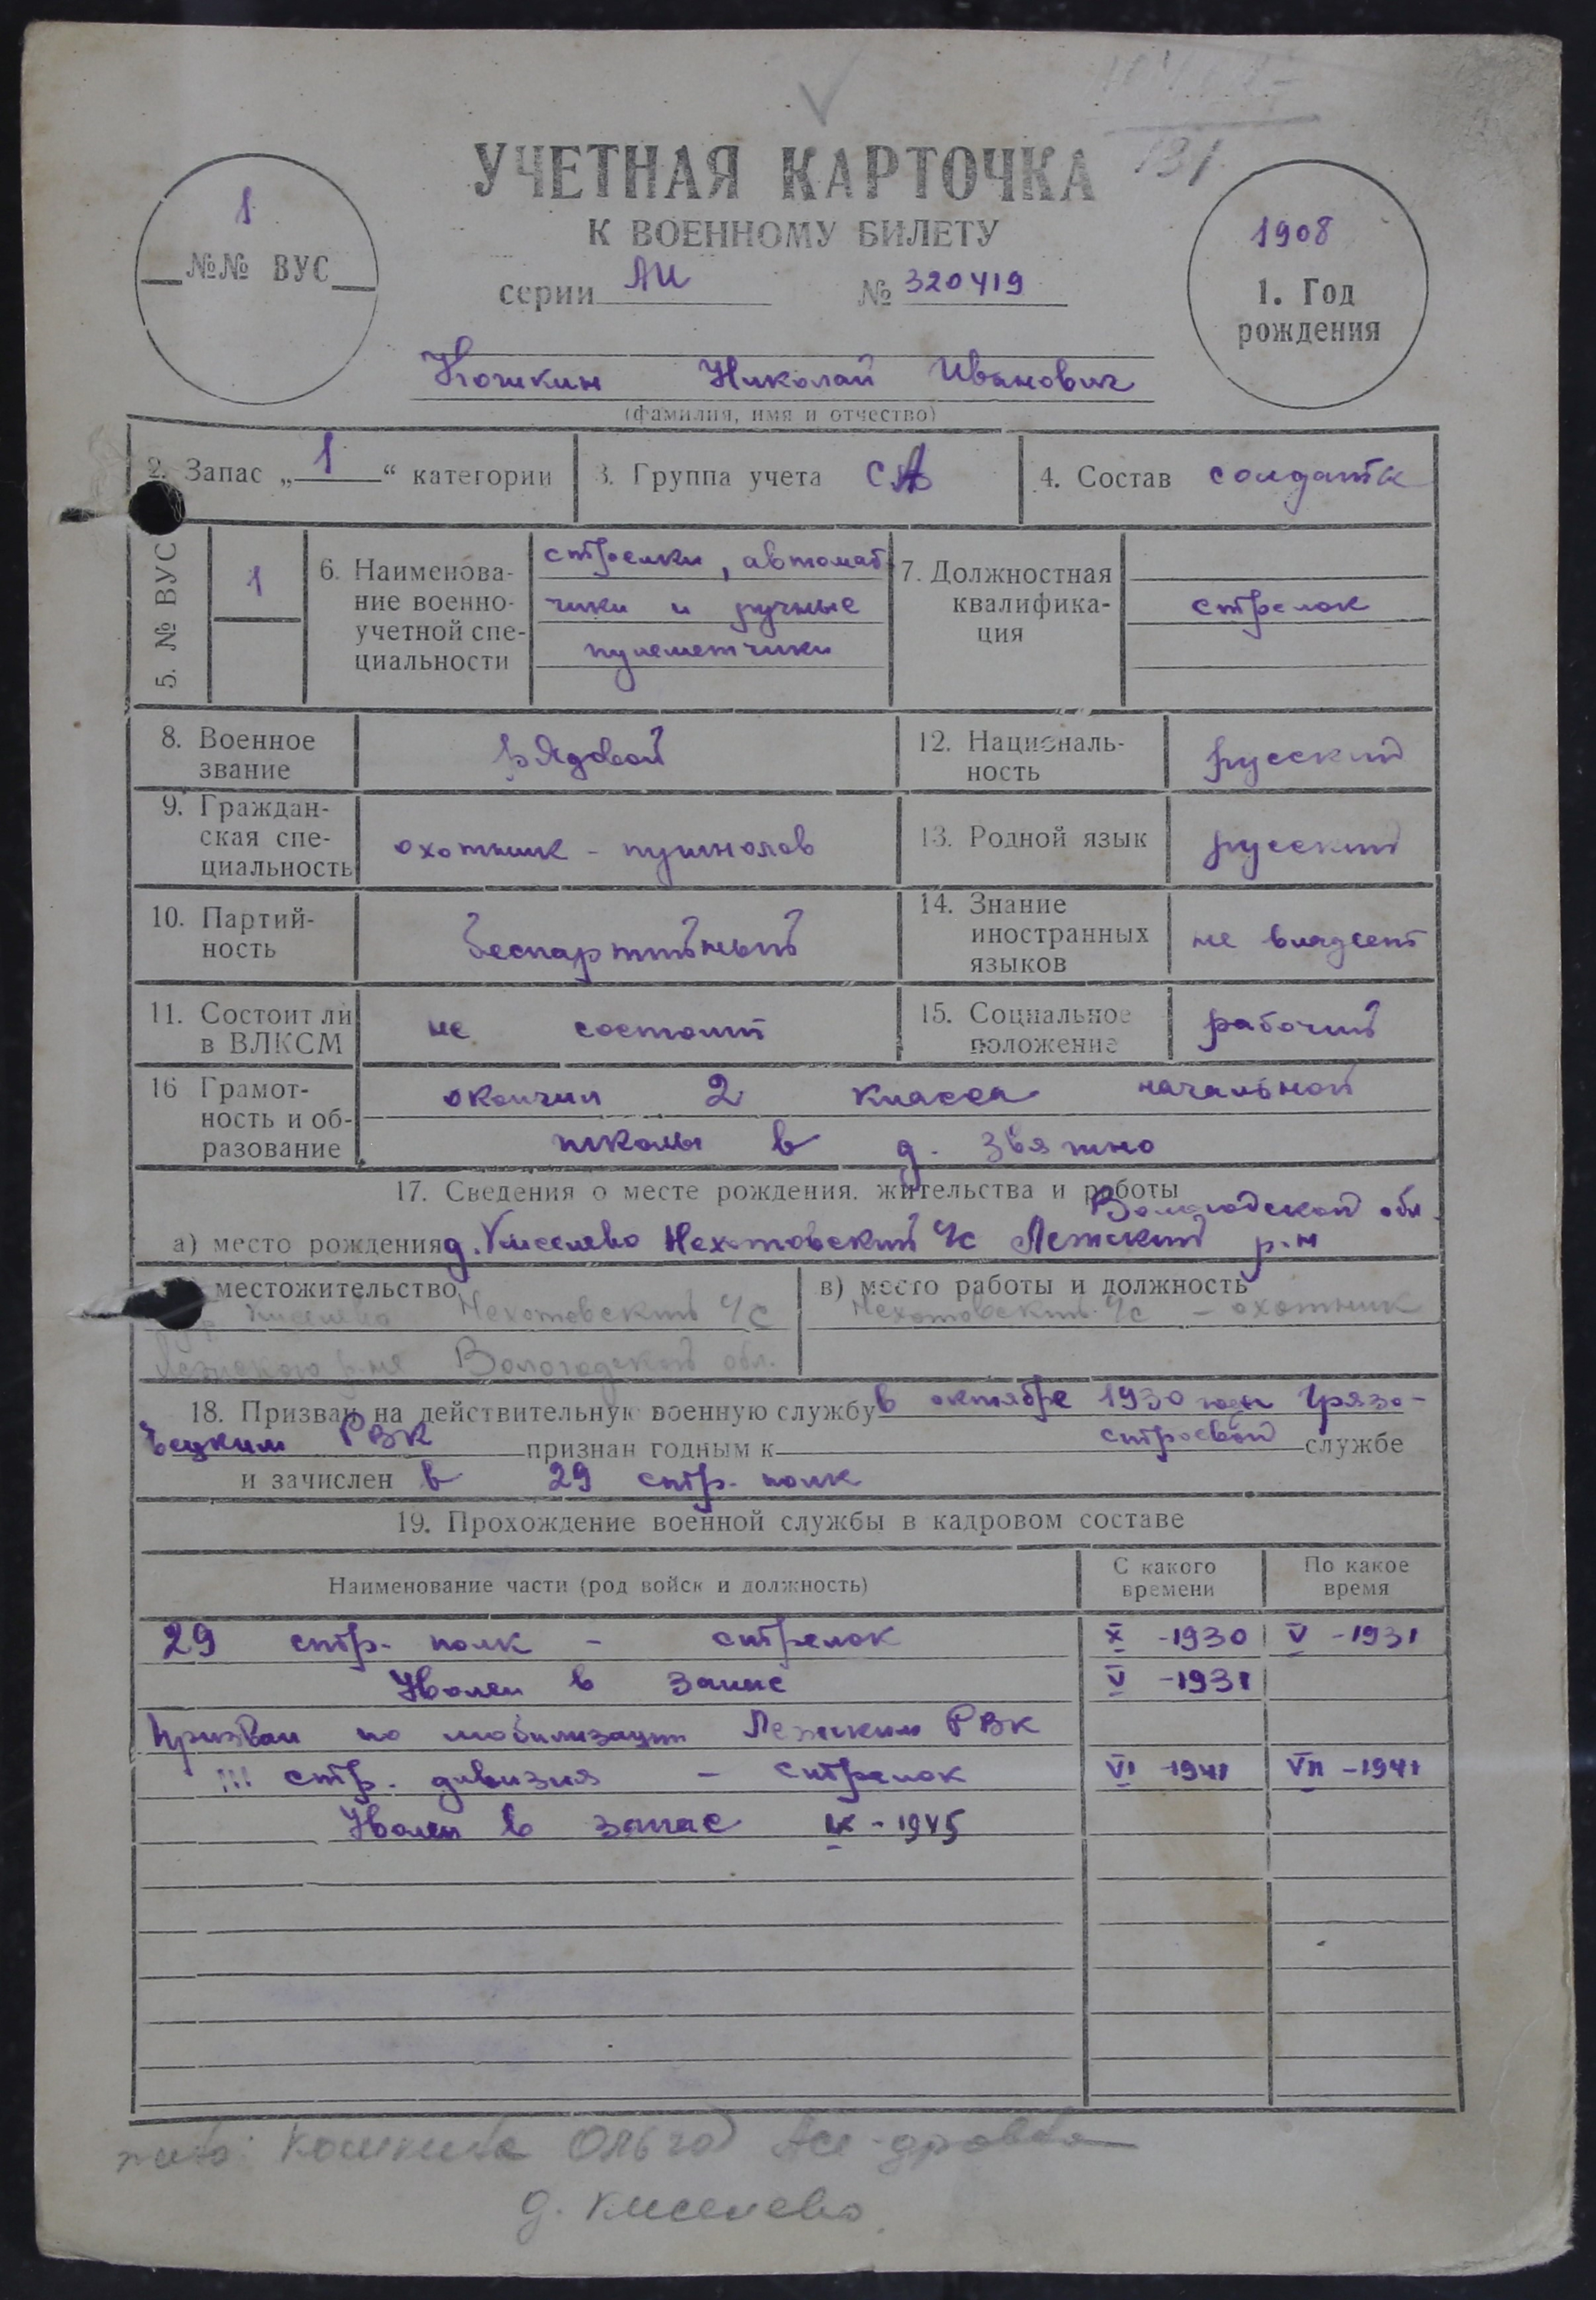 131
УЧЕТНАЯ КАРТОЧКА
К ВОЕННОМУ БИЛЕТУ
серии АИ № 320419
1
№№ ВУС
1908
1. Год
рождения
Кошкин Николай Иванович
(фамилия, имя и отчество)
2. Запас „1“ категории
3. Группа учета СА
4. Состав солдатск
5. № ВУС
1
6. Наименова-
ние военно-
учетной спе-
циальности
стрелки, автомат
чики и ручные
пулеметчики
7. Должностная
квалифика-
ция
стрелок
8. Военное
звание
рядовой
12. Националь-
ность
русский
9. Граждан-
ская спе-
циальность
охотник - пушнолов
13. Родной язык
русский
10. Партий-
ность
беспартийный
14. Знание
иностранных
языков
не владеет
11. Состоит ли
в ВЛКСМ
не состоит
15. Социальное
положение
рабочий
16 Грамот-
ность и об-
разование
окончил 2 класса начальной
школы в д.
17. Сведения о месте рождения. жительства и работы
Вологодской обл.
а) место рождения д. Киселево Нехотовский ч/с Лежский р-н
местожительство
Киселево Нехотовский ч/с
Лежского р-на Вологодской обл.
в) место работы и должность
Нехотовский ч/с - охотник
18. Призван на действительную военную службу в октябре 1930 года Грязо-
вецким РВК признан годным к строевой службе
и зачислен в 29 стр. полк
19. Прохождение военной службы в кадровом составе
Наименование части (род войск и должность)
С какого
времени
По какое
время
29 стр. полк - стрелок X -1930 V -1931
Уволен в запас V -1931
Призван по мобилизации Лежским РВК
111 стр. дивизия - стрелок VI -1941 VII -1941
Уволен в запас IX - 1945
жена: Кошкина Ольга
д. Киселево